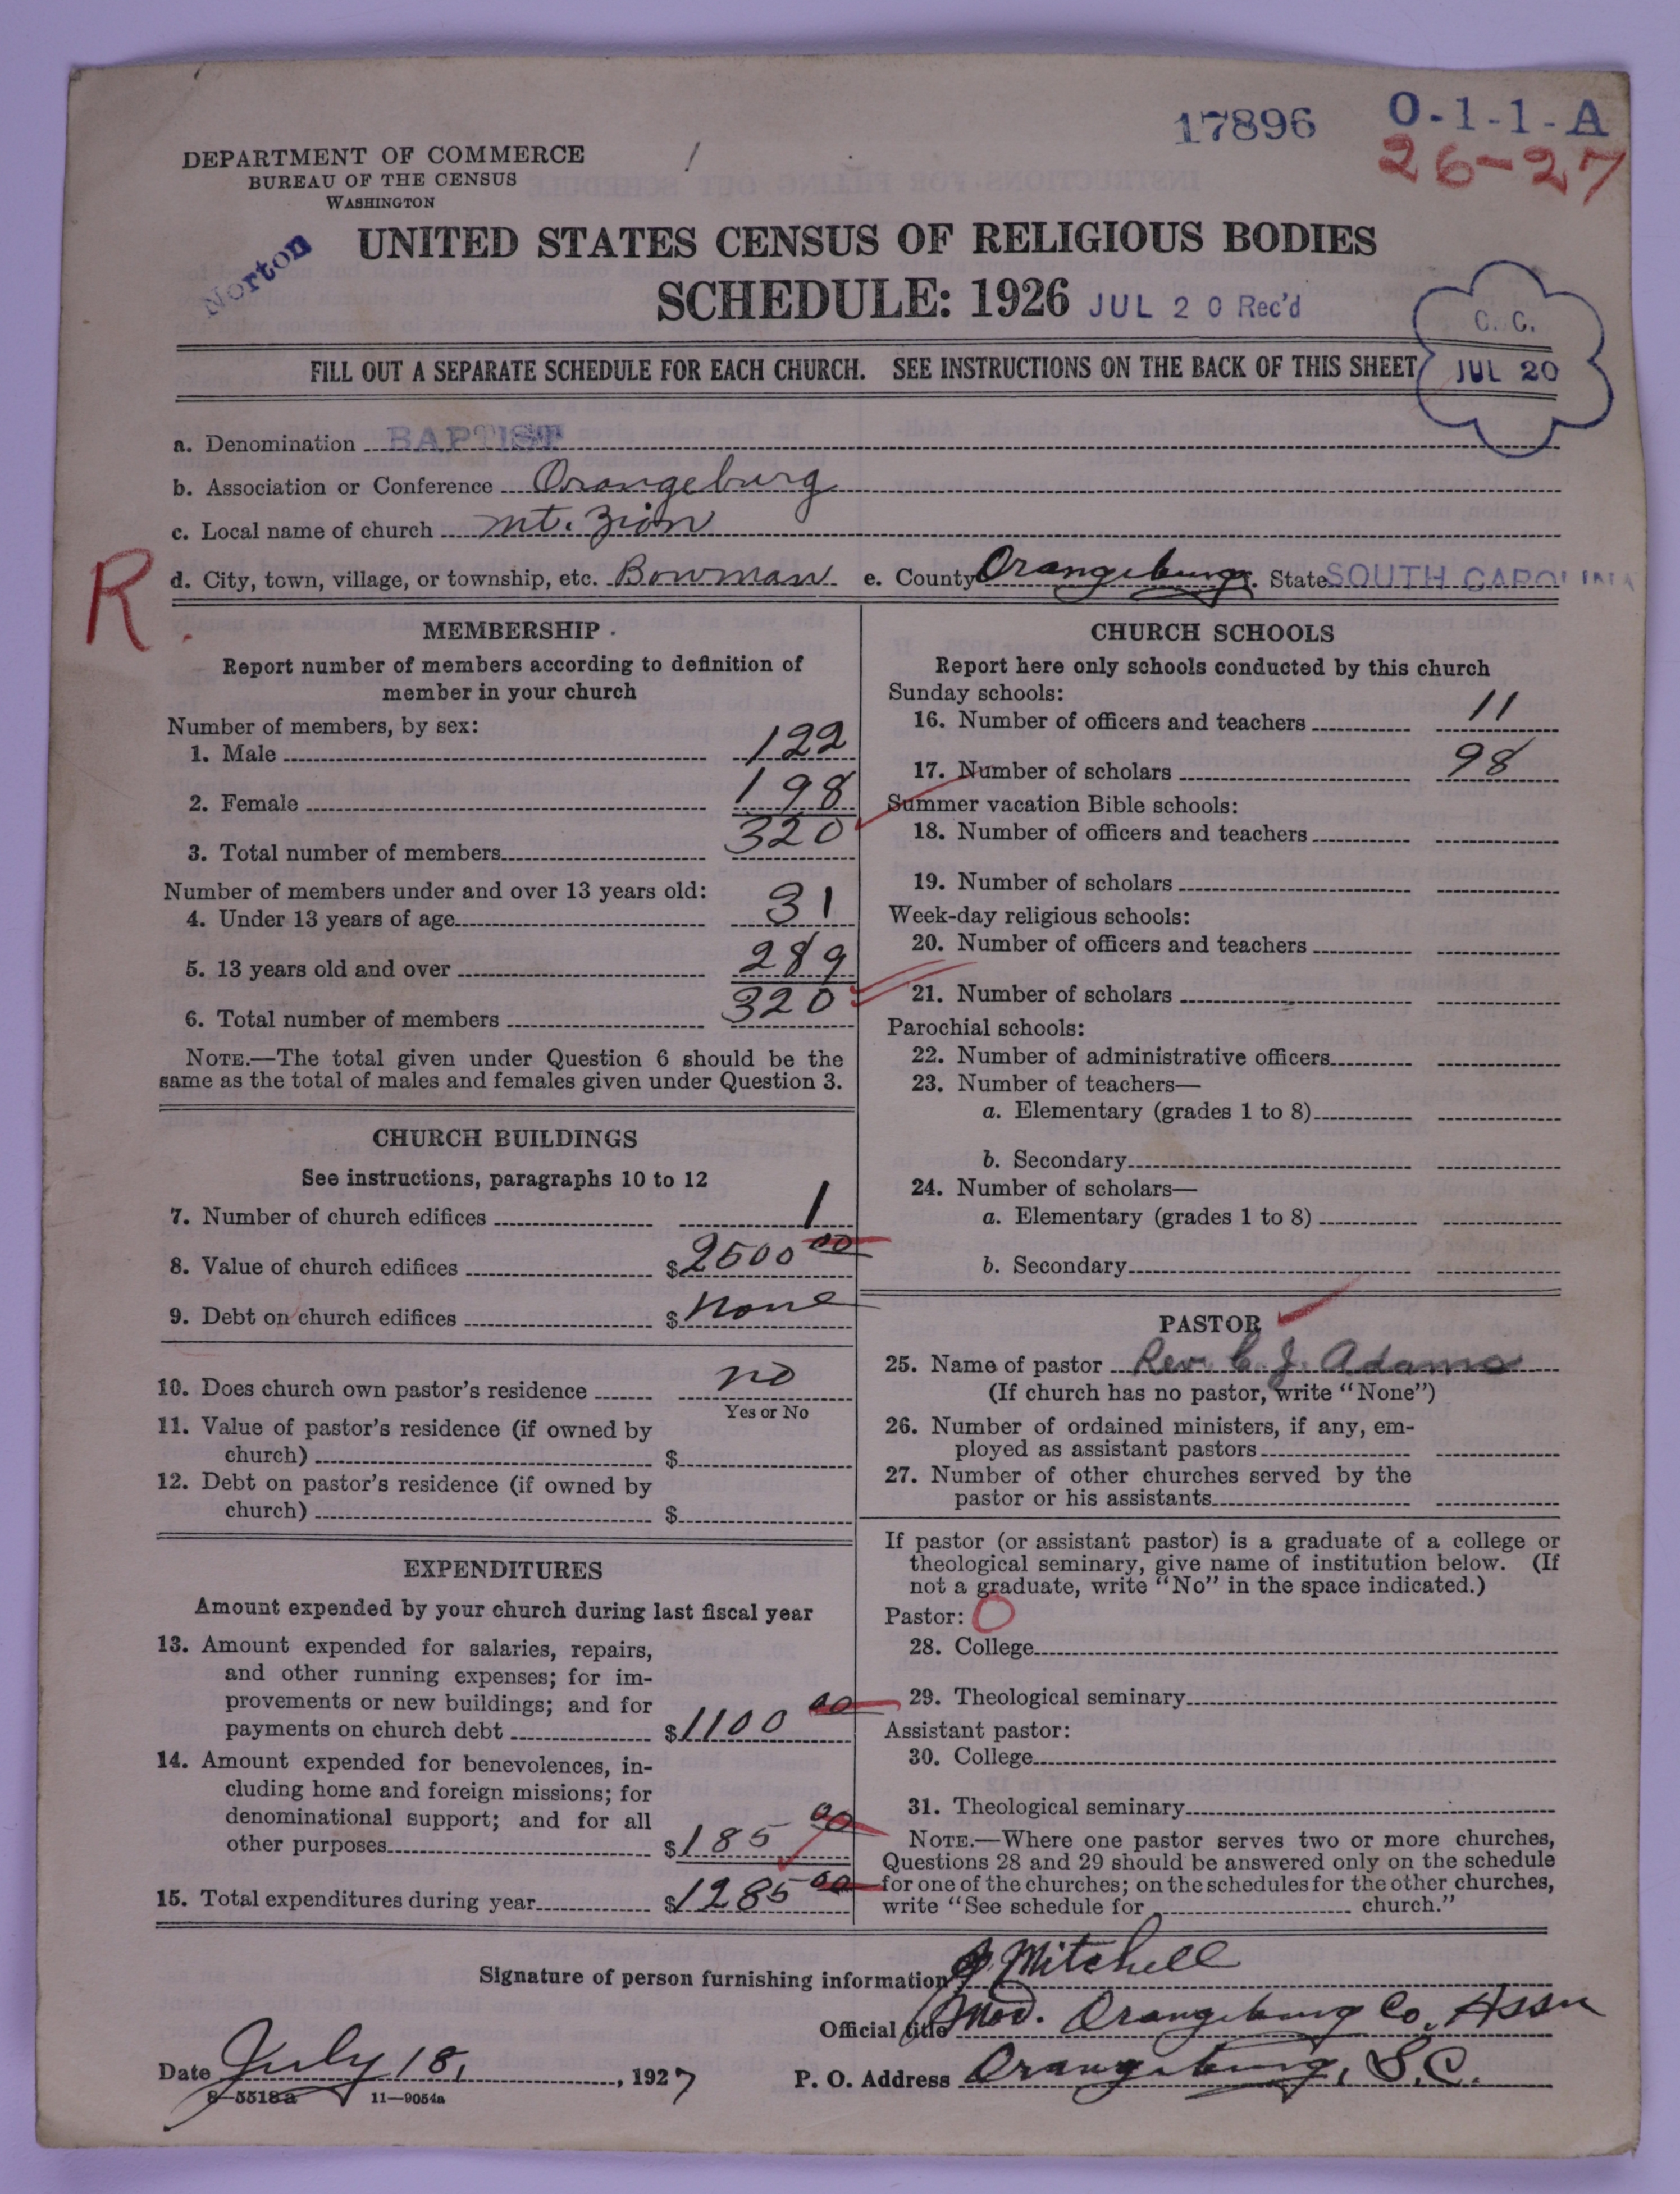 17896
O-1-1-A
26-27
DEPARTMENT OF COMMERCE
BUREAU OF THE CENSUS
WASHINGTON
Norton
UNITED STATES CENSUS OF RELIGIOUS BODIES
SCHEDULE: 1926 JUL 20 Rec'd
C. C.
JUL 20
FILL OUT A SEPARATE SCHEDULE FOR EACH CHURCH. SEE INSTRUCTIONS ON THE BACK OF THIS SHEET
a. Denomination BAPTIST
b. Association or Conference Orangeburg
c. Local name of church Mt. Zion
R
d. City, town, village, or township, etc. Bowman e. County Orangeburg. State SOUTH CAROLINA
MEMBERSHIP
Report number of members according to definition of
member in your church
Number of members, by sex:
1. Male 122
2. Female 198
3. Total number of members 320
Number of members under and over 13 years old:
4. Under 13 years of age 31
5. 13 years old and over 289
6. Total number of members 320
NOTE.—The total given under Question 6 should be the
same as the total of males and females given under Question 3.
CHURCH BUILDINGS
See instructions, paragraphs 10 to 12
7. Number of church edifices 1
8. Value of church edifices $2500 00
9. Debt on church edifices $ None
10. Does church own pastor's residence no
Yes or No
11. Value of pastor's residence (if owned by
church) $
12. Debt on pastor's residence (if owned by
church) $
EXPENDITURES
Amount expended by your church during last fiscal year
13. Amount expended for salaries, repairs,
and other running expenses; for im-
provements or new buildings; and for
payments on church debt $1100 00
14. Amount expended for benevolences, in-
cluding home and foreign missions; for
denominational support; and for all
other purposes $185 00
15. Total expenditures during year $1285 00
CHURCH SCHOOLS
Report here only schools conducted by this church
Sunday schools:
16. Number of officers and teachers 11
17. Number of scholars 98
Summer vacation Bible schools:
18. Number of officers and teachers
19. Number of scholars
Week-day religious schools:
20. Number of officers and teachers
21. Number of scholars
Parochial schools:
22. Number of administrative officers
23. Number of teachers—
a. Elementary (grades 1 to 8)
b. Secondary
24. Number of scholars—
a. Elementary (grades 1 to 8)
b. Secondary
PASTOR
25. Name of pastor Rev. C. J. Adams
(If church has no pastor, write "None")
26. Number of ordained ministers, if any, em-
ployed as assistant pastors
27. Number of other churches served by the
pastor or his assistants
If pastor (or assistant pastor) is a graduate of a college or
theological seminary, give name of institution below. (If
not a graduate, write "No" in the space indicated.)
Pastor: O
28. College
29. Theological seminary
Assistant pastor:
30. College
31. Theological seminary
NOTE.—Where one pastor serves two or more churches,
Questions 28 and 29 should be answered only on the schedule
for one of the churches; on the schedules for the other churches,
write "See schedule for church."
Signature of person furnishing information J Mitchell
Official title Mod. Orangeburg Co. Assn
Date July 18, 1927
P. O. Address Orangeburg, S.C.
8-5518a 11-9054a